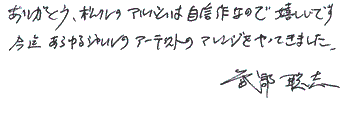 ありがとう、松ルルのアルバムは自信作なので嬉しいです
今迄 あらゆるジャンルのアーテストのアレンジをやってきました。
武部聡志